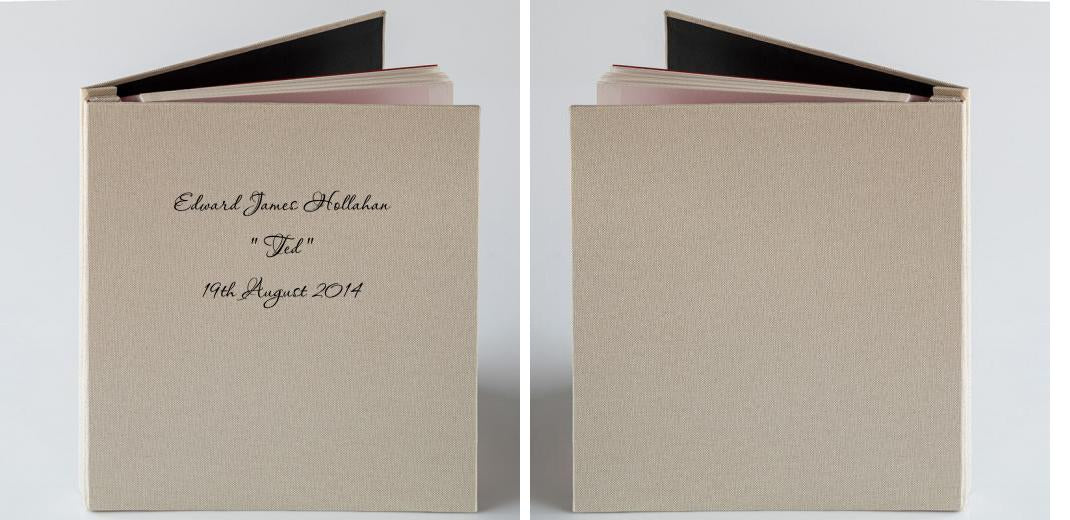 Edward James Hollahan
" Ted "
19th August 2014